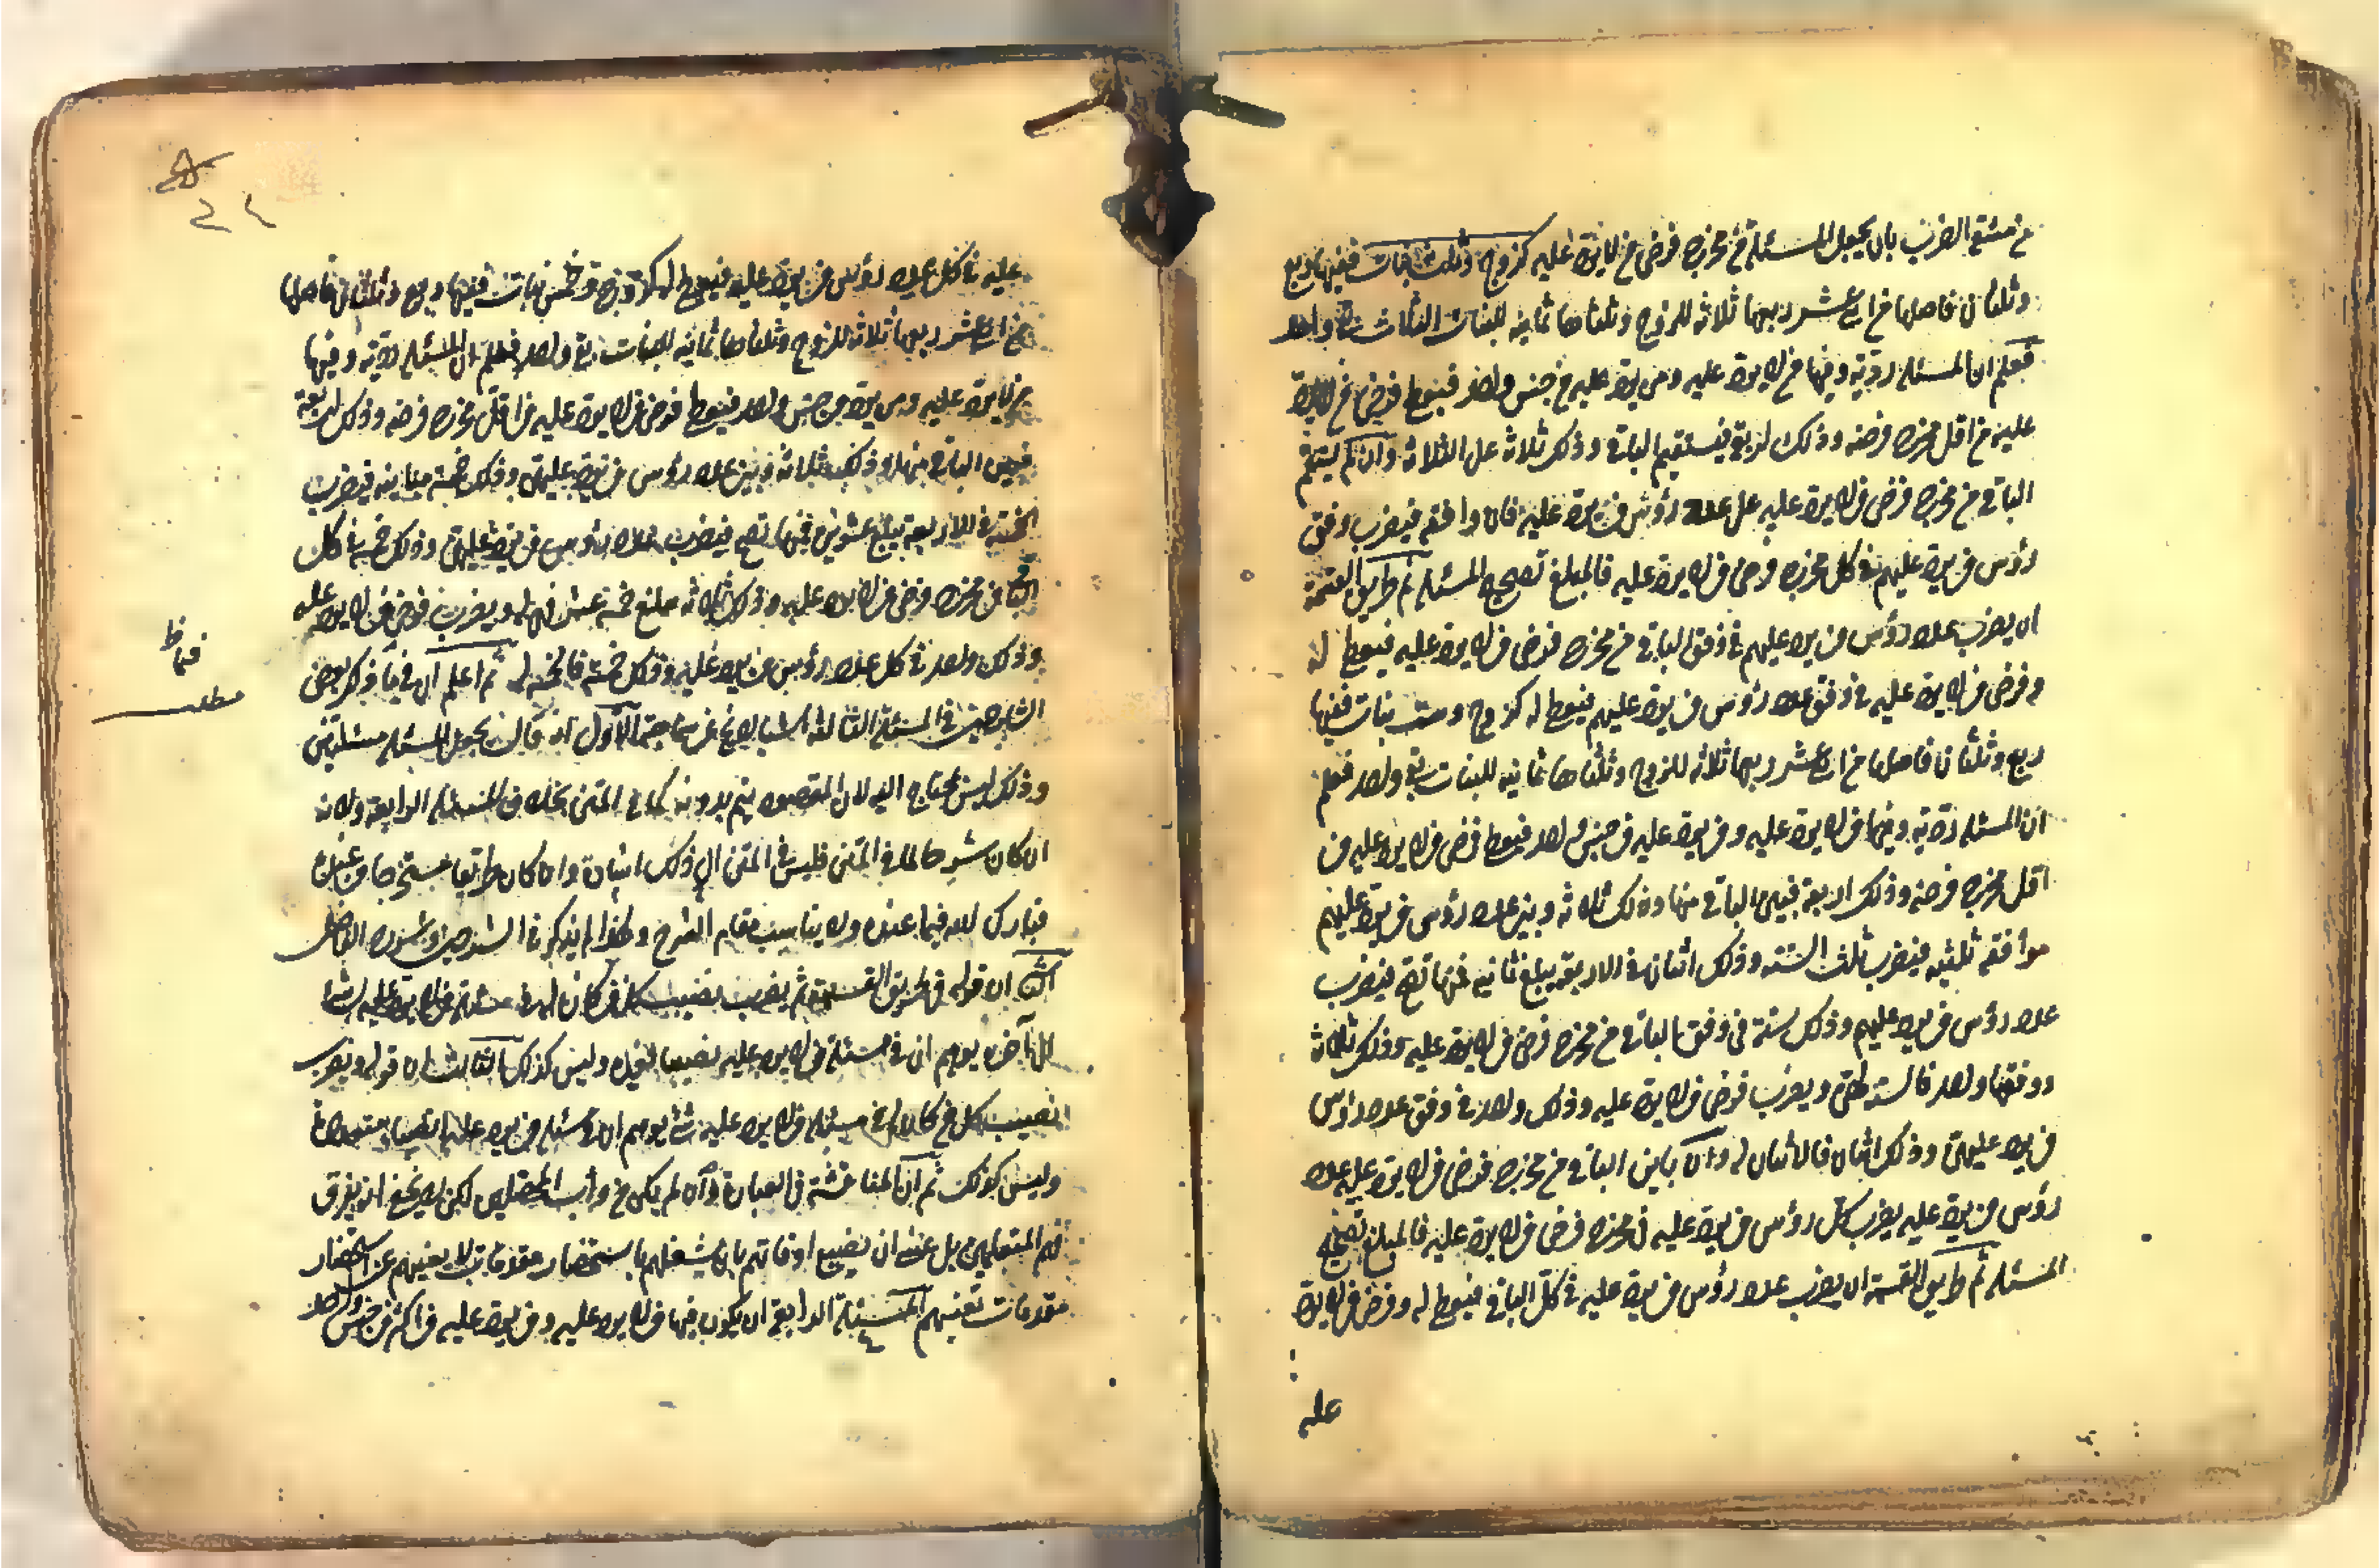 من مشق الضرب بان يجعل المسئلة من مخرج فرض من لا يرد عليه كزوج وثلث بنات ففيها ربع
وثلثان فاصلها من اثنى عشر ربعها ثلاثة للزوج وثلثاها ثمانية للبنات الثلاث بقي واحد
فعلم ان المسئلة ردية وفيها من لا يرد عليه ومن يرد عليه من جنس واحد فيعط فرض من لا يرد
عليه من اقل مخرج فرضه وذلك اربعة فيستقيم الباقي وذلك ثلاثة على الثلاثة وان لم يستقم
الباقي من مخرج فرض من لا يرد عليه على عدد رؤس من يرد عليه فان وافقه فيضرب وفق
رؤس من يرد عليهم في كل مخرج فرض من لا يرد عليه فالمبلغ تصحيح المسئلة ثم طريق القسمة
ان يضرب عدد رؤس من يرد عليهم في وفق الباقي من مخرج فرض من لا يرد عليه فيعط له
وفرض من لا يرد عليه في وفق عدد رؤس من يرد عليهم فيعط له كزوج وست بنات ففيها
ربع وثلثان فاصلها من اثنى عشر ربعها ثلاثة للزوج وثلثاها ثمانية للبنات بقي واحد فعلم
ان المسئلة ردية وفيها من لا يرد عليه ومن يرد عليه من جنس واحد فيعط فرض من لا يرد عليه من
اقل مخرج فرضه وذلك اربعة فبين الباقي منها وذلك ثلاثة وبين عدد رؤس من يرد عليهم
موافقة ثلثية فيضرب ثلث الستة وذلك اثنان في الاربعة يبلغ ثمانية فمنها تصح فيضرب
عدد رؤس من يرد عليهم وذلك ستة في وفق الباقي من مخرج فرض من لا يرد عليه وذلك ثلاثة
ووفقها واحد فالستة لهن ويضرب فرض من لا يرد عليه وذلك واحد في وفق عدد رؤس
من يرد عليهن وذلك اثنان فالاثنان له وان باين الباقي من مخرج فرض من لا يرد عليه عدد
رؤس من يرد عليه يضرب كل رؤس من يرد عليه في مخرج فرض من لا يرد عليه فالمبلغ تصحيح
المسئلة ثم طريق القسمة ان يضرب عدد رؤس من يرد عليه في كل الباقي فيعط له وفرض من لا يرد
عليه
عليه في كل عدد رؤس من يرد عليه فيعط له كزوج وخمس بنات ففيها ربع وثلثان فاصلها
من اثنى عشر ربعها ثلاثة للزوج وثلثاها ثمانية للبنات بقي واحد فعلم ان المسئلة ردية وفيها
من لا يرد عليه ومن يرد من جنس واحد فيعط فرض من لا يرد عليه من اقل مخرج فرضه وذلك اربعة
فبين الباقي منها وذلك ثلاثة وبين عدد رؤس من يرد عليهن وذلك خمسة مباينة فيضرب
الخمسة في الاربعة يبلغ عشرين فمنها تصح فيضرب عدد رؤس من يرد عليهن وذلك خمسة في كل
الباقي من مخرج فرض من لا يرد عليه وذلك ثلاثة مبلغ خمسة عشر فهي لهن ويضرب فرض من لا يرد عليه
وذلك واحد في كل عدد رؤس من يرد عليه وذلك خمسة فالخمسة له ثم اعلم ان فيما ذكر بعض
الشارحين في المسئلة الثالثة اشياء لا يخ عن سماجة الاول انه قال يجعل المسئلة مسئلتين
وذلك ليس بمحتاج اليه لان المقصود يتم بدونه كما في المتن بخلاف المسئلة الرابعة ولانه
ان كان شرحا لما في المتن فليس في المتن الى ذلك اشارة وان كان طريقا مستخرجا من عنده
فبارك الله فيما عنده ولا يناسب مقام الشرح ولهذا لم يذكر في الشروح
الثاني ان قوله في طريق القسمة ثم يضرب نصيب كل من كان له في مسئلة من لا يرد عليه شئ
الى آخره يوهم ان في مسئلة من لا يرد عليه نصيبا لغيره وليس كذلك الثالث ان قوله ويضرب
نصيب كل من كان له في مسئلة من لا يرد عليه شئ يوهم ان في مسئلة من يرد عليه
وليس كذلك ثم ان المناقشة في العبارة وان لم يكن من دأب المحصلين لكن لا ينبغي ان يفرق
فهم المتعلمين بل عنه ان يضيع اوقاتهم بان يشغلهم باستحضار مقدمات لا يعنيهم عن استحضار
مقدمات تعنيهم المسئلة الرابعة ان يكون فيها من لا يرد عليه ومن يرد عليه من اكثر من جنس واحد
مطلب